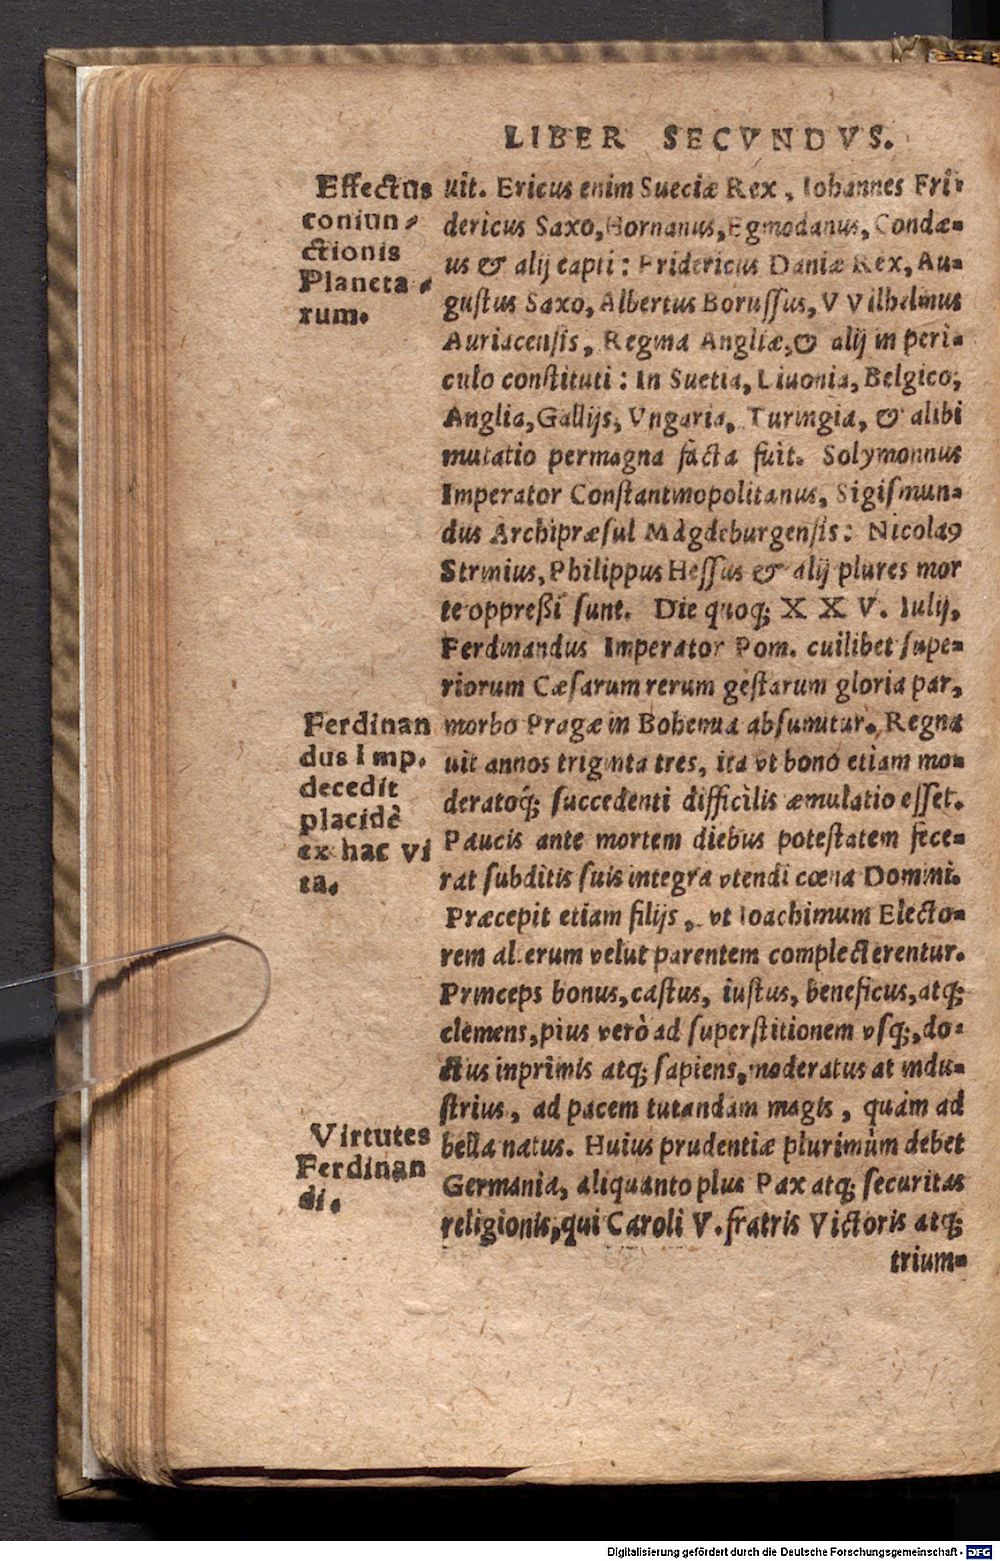 LIBER SECVNDVS.
Effectus
coniun-
ctionis
Planeta-
rum.
uit. Ericus enim Sueciæ Rex, Iohannes Fri-
dericus Saxo, Hornanus, Egmodanus, Condæ-
us & alij capti: Fridericus Daniæ Rex, Au-
gustus Saxo, Albertus Borussus, VVilhelmus
Auriacensis, Regina Angliæ, & alij in peri-
culo constituti: In Suetia, Liuonia, Belgico,
Anglia, Gallijs, Vngaria, Turingia, & alibi
mutatio permagna facta fuit. Solymonnus
Imperator Constantinopolitanus, Sigismun-
dus Archipræsul Magdeburgensis: Nicolaꝰ
Strinius, Philippus Hessus & alij plures mor
te oppreßi sunt. Die quoq; XXV. Iulij,
Ferdinandus Imperator Pom. cuilibet supe-
riorum Cæsarum rerum gestarum gloria par,
Ferdinan
dus Imp.
decedit
placidè
ex hac vi
ta.
morbo Pragæ in Bohemia absumitur. Regna
uit annos triginta tres, ita vt bono etiam mo-
deratoq́; succedenti difficilis æmulatio esset.
Paucis ante mortem diebus potestatem fece-
rat subditis suis integra vtendi cœna Domini.
Præcepit etiam filijs, vt Ioachimum Electo-
rem alterum velut parentem complecterentur.
Princeps bonus, castus, iustus, beneficus, atq;
clemens, pius verò ad superstitionem vsq;, do-
ctus inprimis atq; sapiens, moderatus at indu-
strius, ad pacem tutandam magis, quàm ad
Virtutes
Ferdinan
di.
bella natus. Huius prudentiæ plurimùm debet
Germania, aliquanto plus Pax atq; securitas
religionis, qui Caroli V. fratris Victoris atq;
trium-
Digitalisierung gefördert durch die Deutsche Forschungsgemeinschaft - DFG